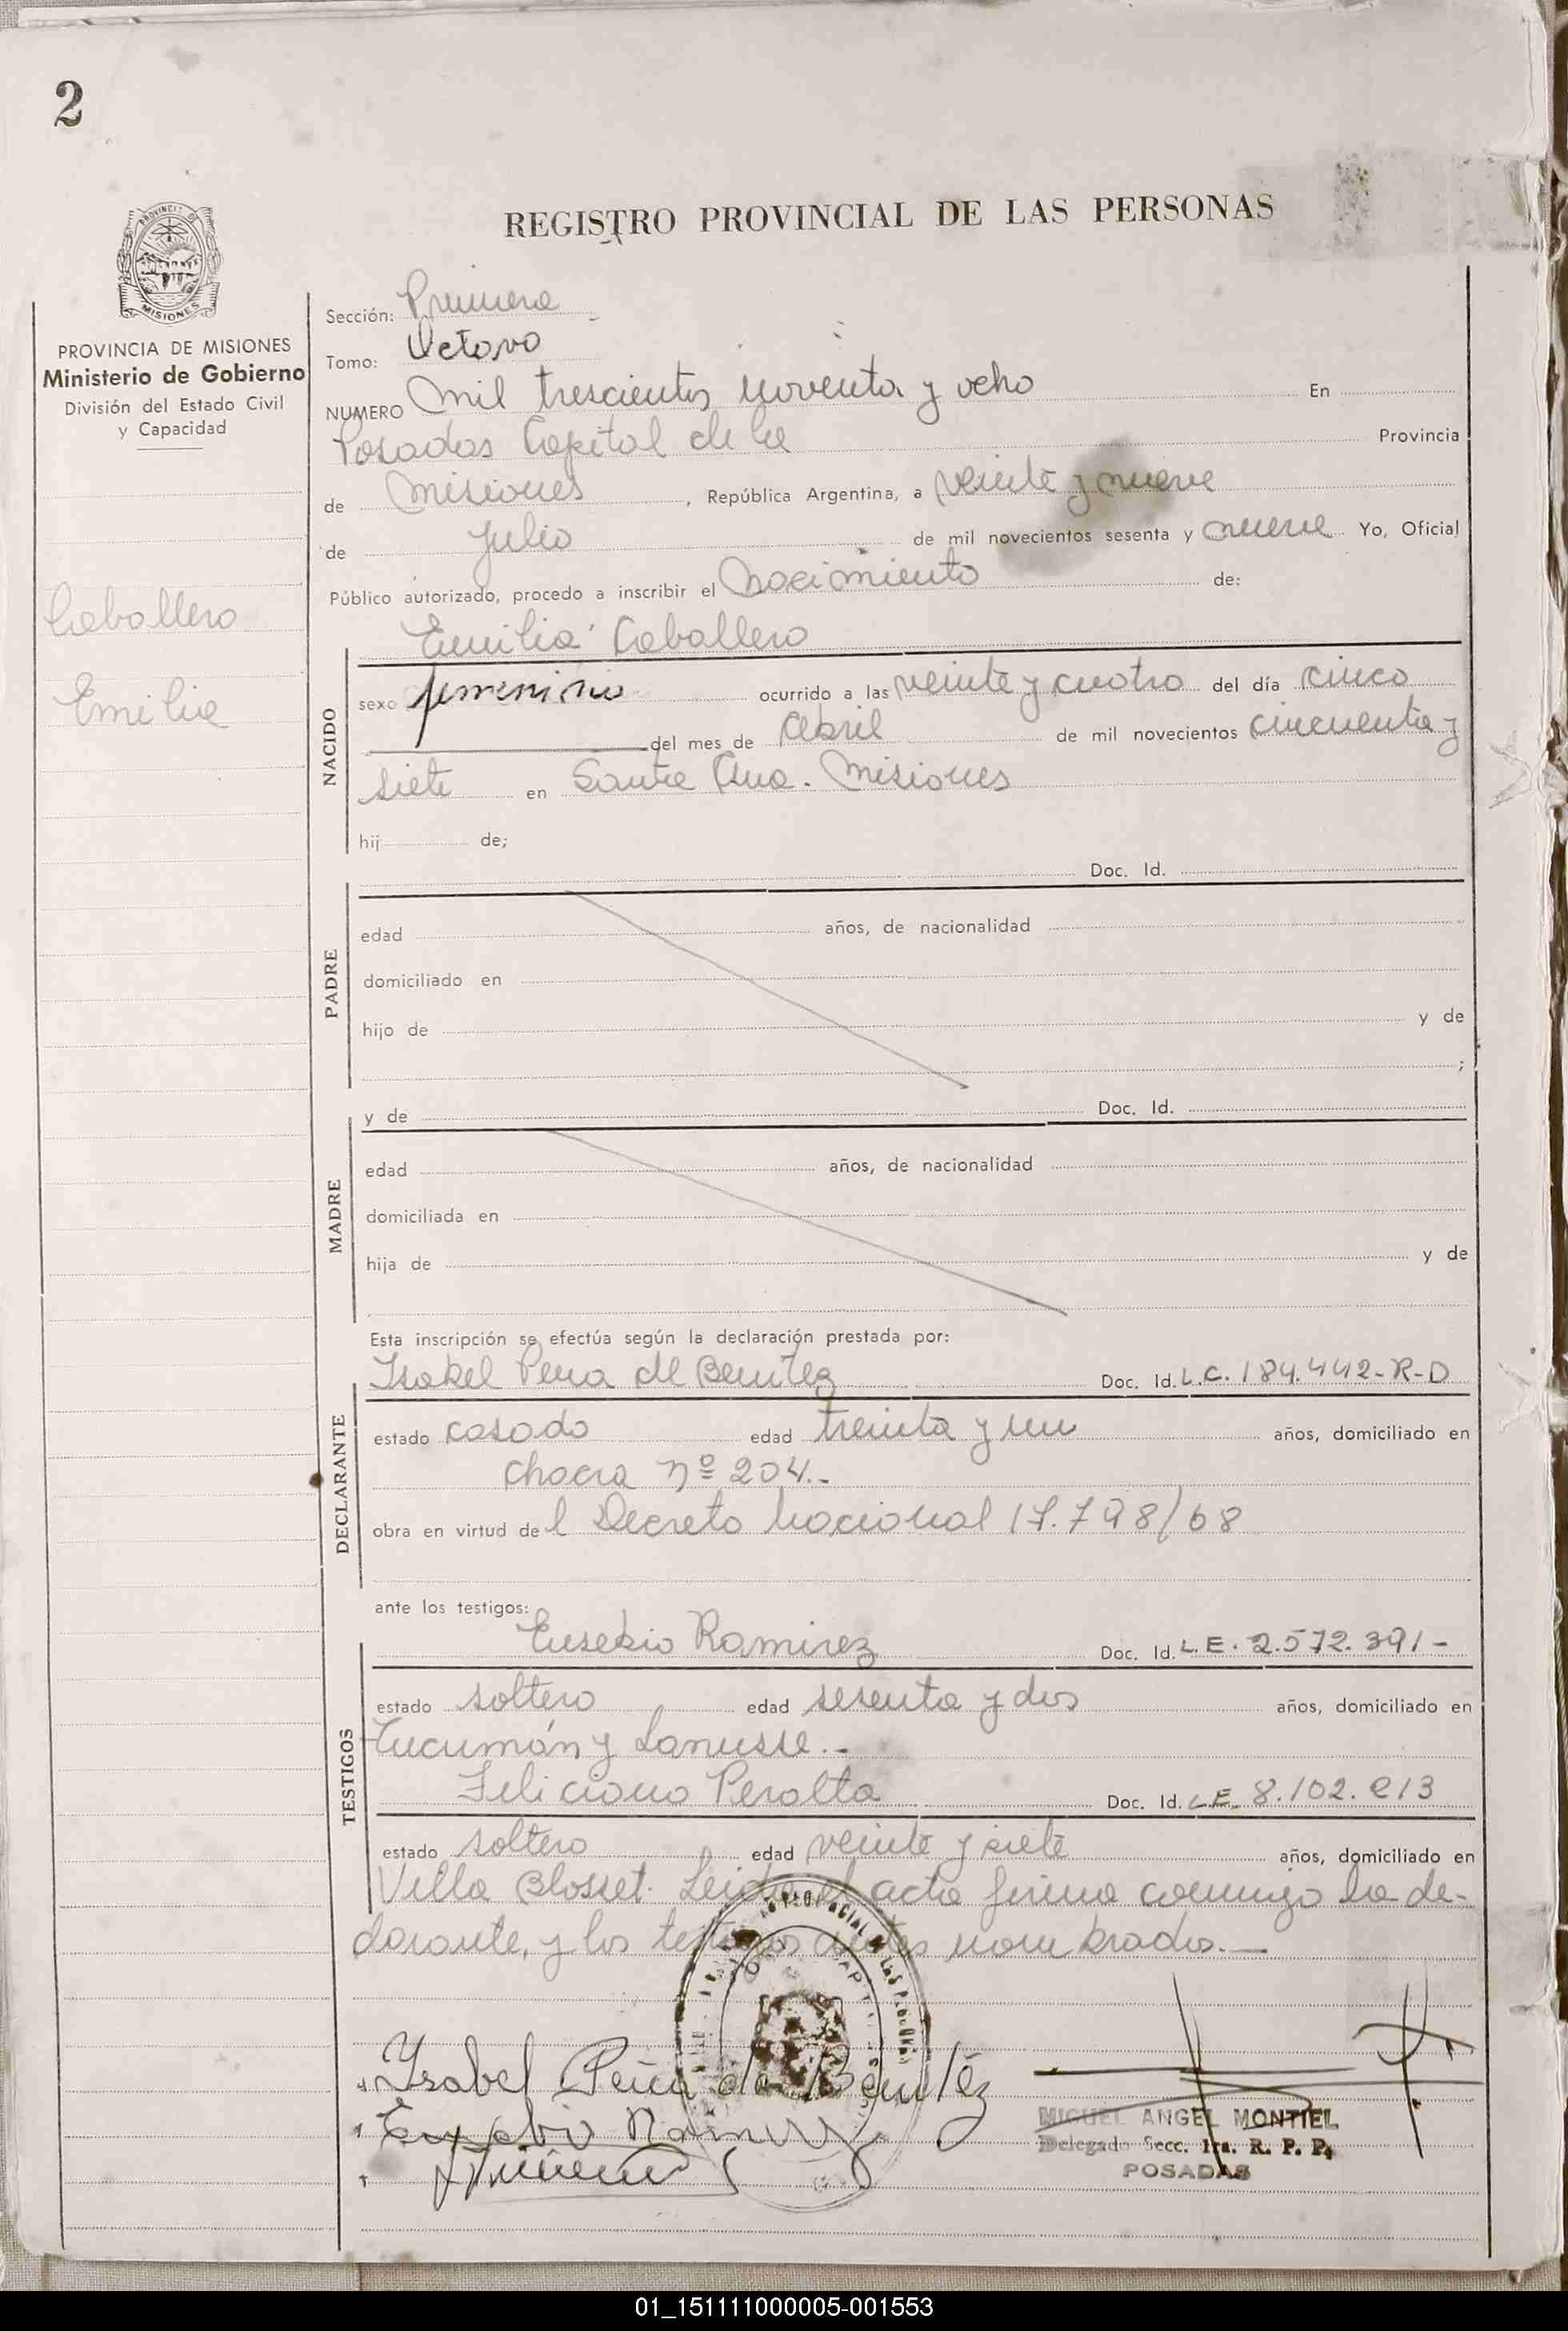 2
PROVINCIA DE MISIONES
Ministerio de Gobierno
División del Estado Civil
y Capacidad
Caballero
Emilia
REGISTRO PROVINCIAL DE LAS PERSONAS
Sección: Primera
Tomo: Octavo
NUMERO Mil trescientos noventa y ocho En
Posadas Capital de la Provincia
de Misiones, República Argentina, a veinte y nueve
de Julio de mil novecientos sesenta y nueve Yo, Oficial
Público autorizado, procedo a inscribir el Nacimiento de:
Emilia Caballero
NACIDO
sexo femenino ocurrido a las veinte y cuatro del día cinco
del mes de Abril de mil novecientos cincuenta y
siete en Santa Ana. Misiones
hij de;
Doc. Id.
PADRE
edad años, de nacionalidad
domiciliado en
hijo de y de
;
y de Doc. Id.
MADRE
edad años, de nacionalidad
domiciliada en
hija de y de
Esta inscripción se efectúa según la declaración prestada por:
Isabel Pena de Benitez Doc. Id. L.C. 184.442-R-D
DECLARANTE
estado casada edad treinta y un años, domiciliado en
chacra nº 204.-
obra en virtud del Decreto Nacional 17.798/68
ante los testigos:
Eusebio Ramirez Doc. Id. L.E. 2.572.391-
TESTIGOS
estado soltero edad sesenta y dos años, domiciliado en
Tucumán y Lanusse.-
Feliciano Peralta Doc. Id. L.E. 8.102.213
estado soltero edad veinte y siete años, domiciliado en
Villa Blosset. Leida el acta firma conmigo la de-
clarante, y los testigos antes nombrados.—
Ysabel Peña de Benitéz
Eusebio Ramirez
MIGUEL ANGEL MONTIEL
Delegado Secc. 1ra. R. P. P.
POSADAS
01_151111000005-001553